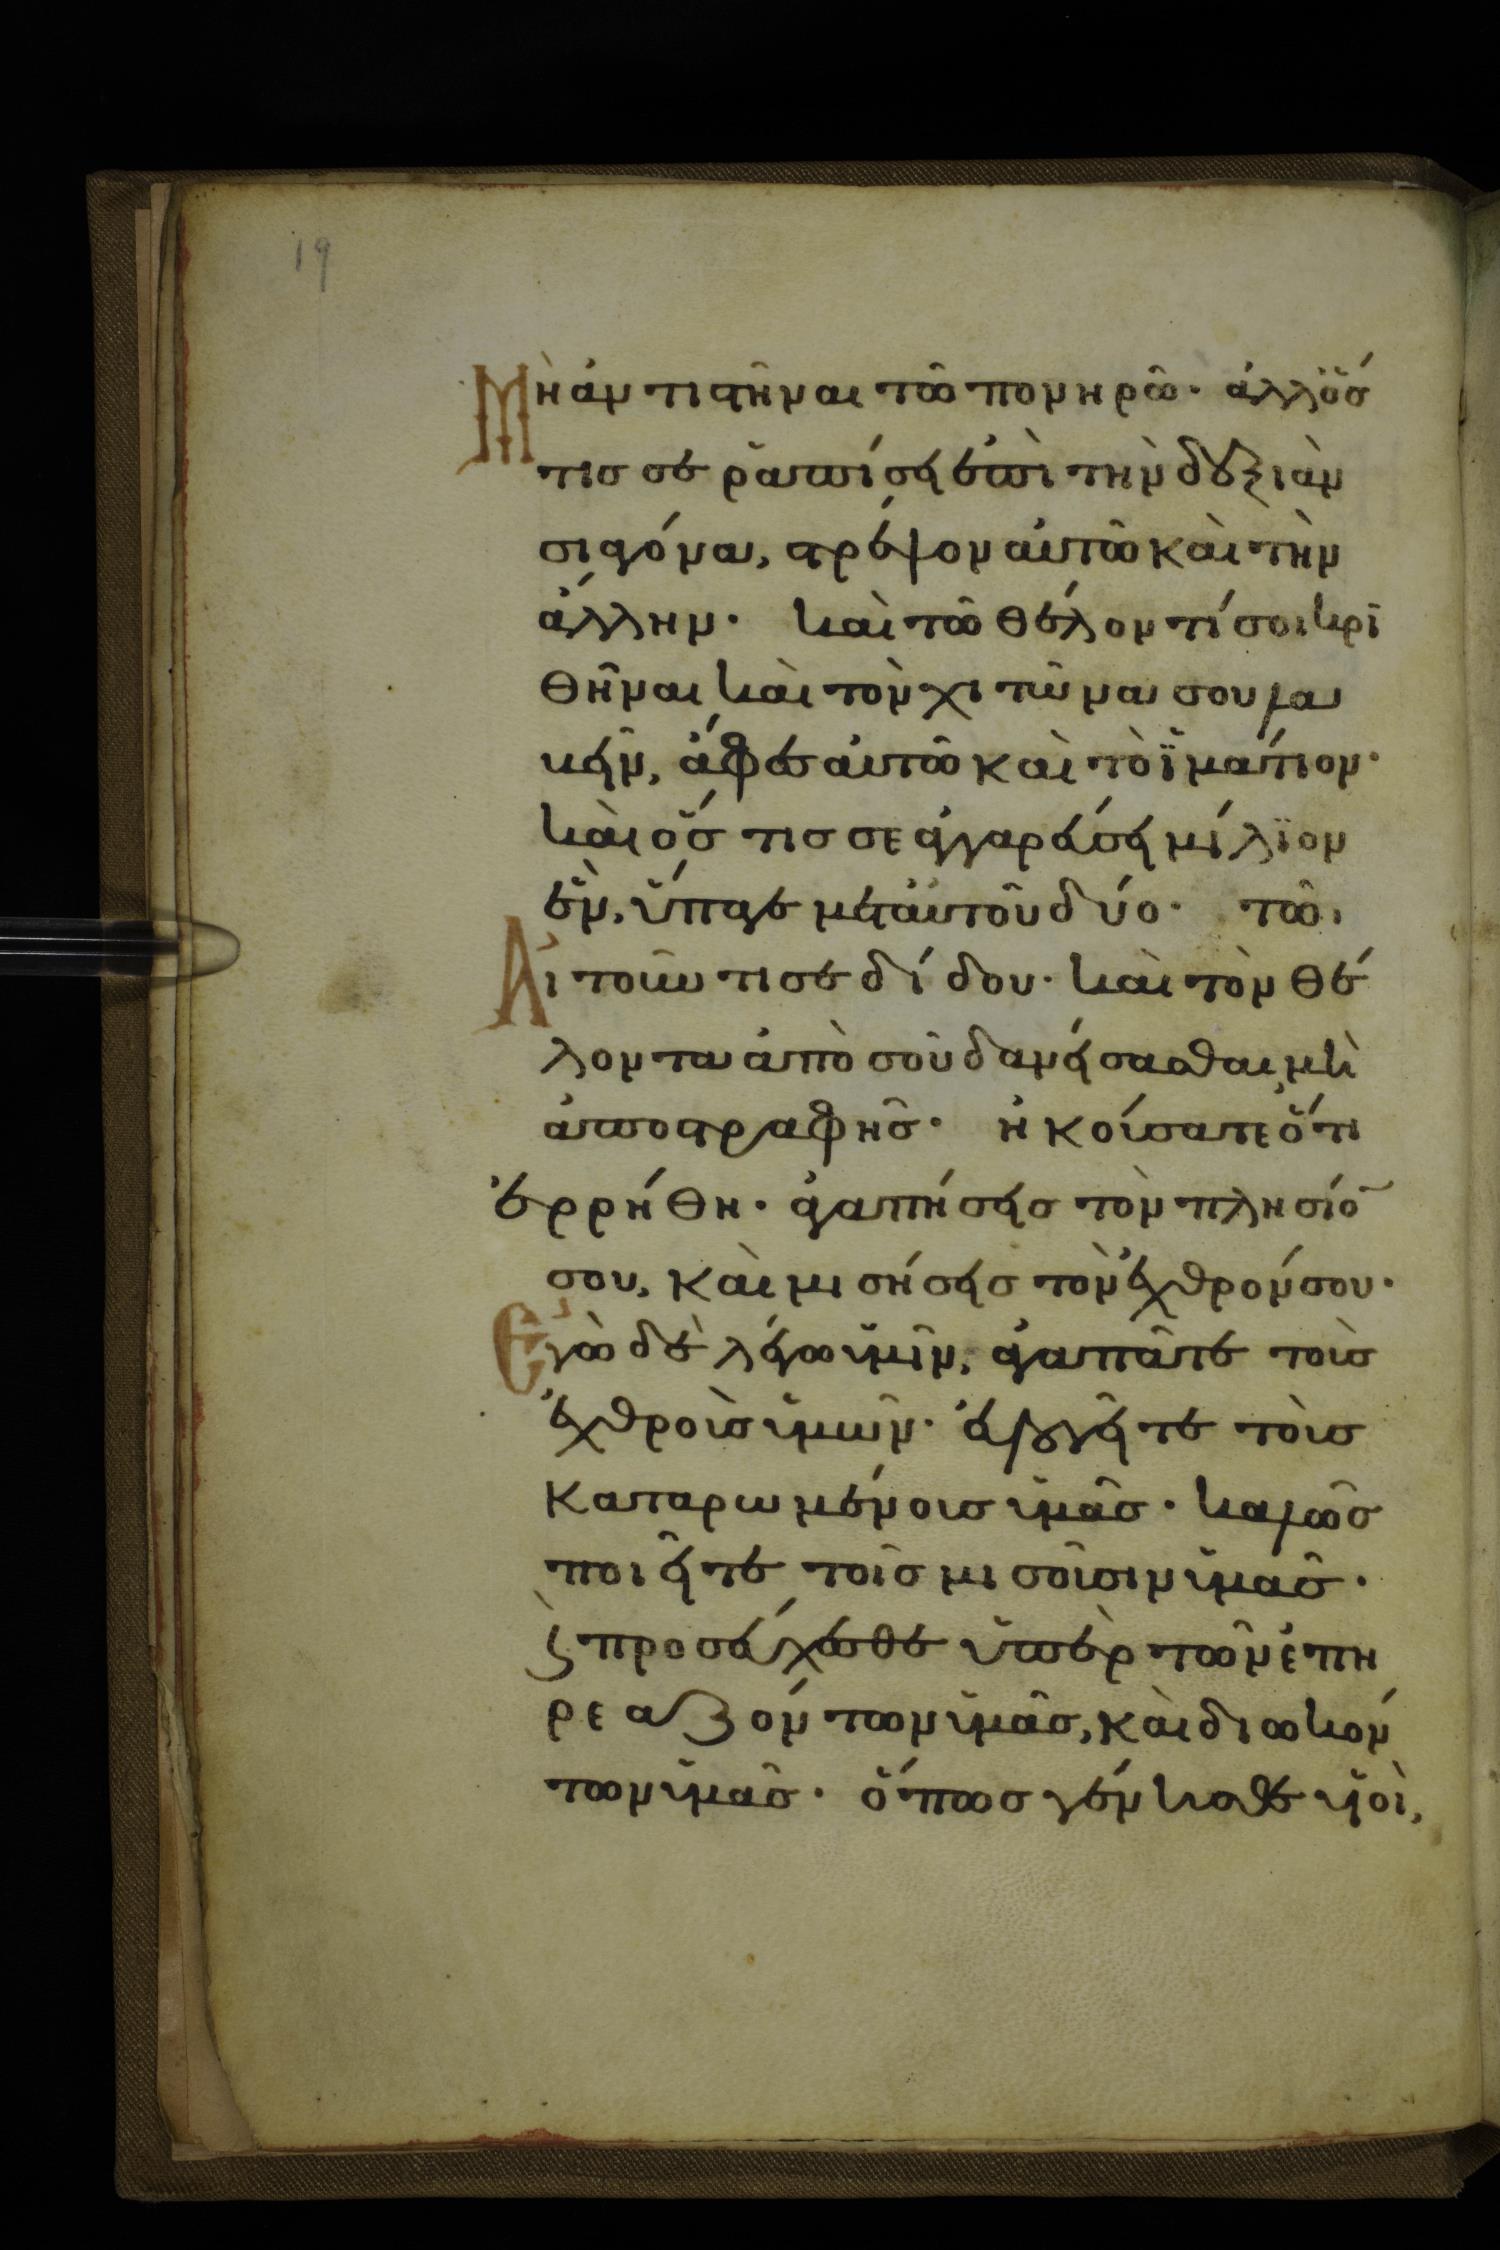 19
Μὴ ἀντιστῆναι τῶ πονηρῶ· ἀλλ' ὅσ
τισ σε ῥαπίσει ἐπὶ τὴν δεξιὰν
σιαγόνα, στρέψον αὐτῶ καὶ τὴν
ἄλλην· καὶ τῶ θέλοντί σοι κρι
θῆναι καὶ τὸν χιτῶνα σου λα
κεῖν, ἄφεσ αὐτῶ καὶ τὸ ἱμάτιον·
καὶ ὅστισ σε ἀγγαρεύσει μίλϊον
ἓν, ὕπαγε μετ' αὐτοῦ δύο· τῶ
Αἰτοῦντι σε δίδου· καὶ τὸν θέ
λοντα ἀπὸ σοῦ δανείσασθαι μὴ
ἀποστραφῆσ· ἠκούσατε ὅτι
ἐρρήθη· ἀγαπήσεισ τὸν πλησίο̄
σου, καὶ μισήσεισ τὸν ἐχθρόν σου·
Ἐγὼ δὲ λέγω ὑμῖν, ἀγαπᾶτε τοὺσ
ἐχθροὺσ ὑμῶν· εὐλογεῖτε τοὺσ
καταρωμένουσ ὑμᾶσ· καλῶσ
ποιεῖτε τοῖσ μισοῦσιν ὑμᾶσ·
ϗ προσεύχεσθε ὑπὲρ τῶν ἐπη
ρεαζόντων ὑμᾶσ, καὶ διωκόν
των ὑμᾶσ· ὅπωσ γένησθε υἱοὶ,